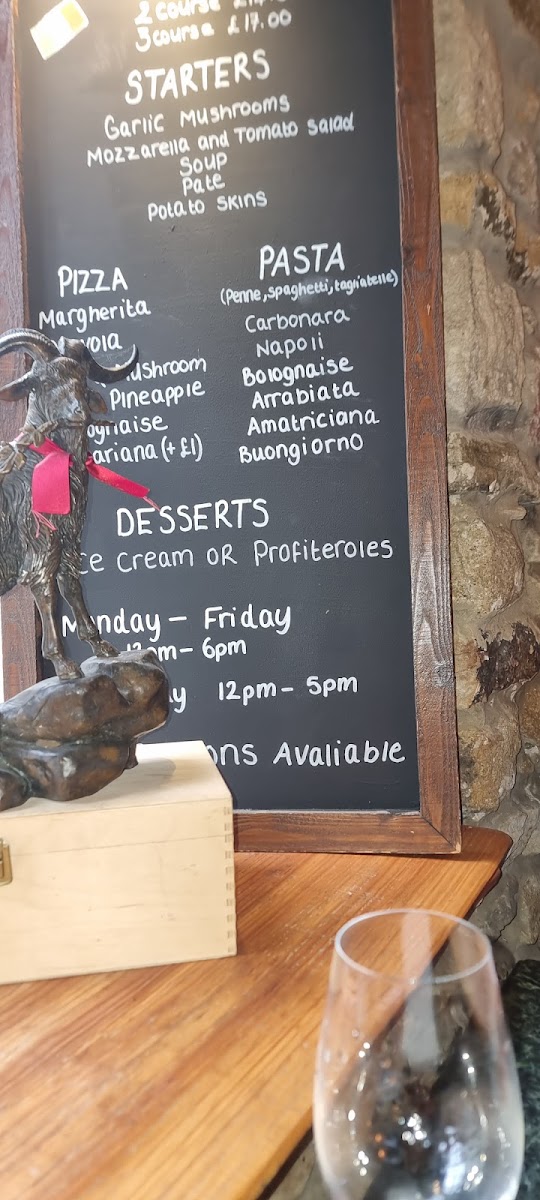 2 course
3 course £17.00
STARTERS
Garlic Mushrooms
Mozzarella and Tomato Salad
Soup
Pate
Potato Skins
PIZZA
Margherita
Pineapple
(+£1)
PASTA
(Penne, spaghetti, tagriatelle)
Carbonara
Napoli
Bolognaise
Arrabiata
Amatriciana
Buongiorno
DESSERTS
Cream OR Profiteroles
Monday - Friday
12pm - 6pm
12pm - 5pm
Avaliable